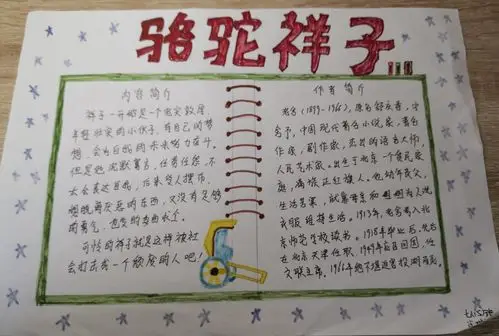 骆驼祥子
内容简介
祥子一开始是一个老实敦厚,
年轻壮实的小伙子,有自己的梦
想,会为自己的未来努力奋斗。
但是他沉默寡言,任劳任怨,不
太会表达自己,后来受人摆布,
想脱离厌恶的东西,又没有足够
的勇气,
可怜的祥子就是这样被社
会打击成一个颓废的人吧!
作者简介
老舍(1899-1966),原名舒庆春,字
舍予,中国现代著名小说家,著名
作家,剧作家,杰出的语言大师,
人民艺术家。出生于北京一个贫民家
庭,满族正红旗人。他幼年丧父,
生活艰窘,就靠母亲和为人洗
衣服维持生活。1913年,老舍考入北
京师范学校读书。1918年毕业后,先后
在北京天津任职,1949年后回国,任
文联主席。1966年他不堪迫害投湖而死。